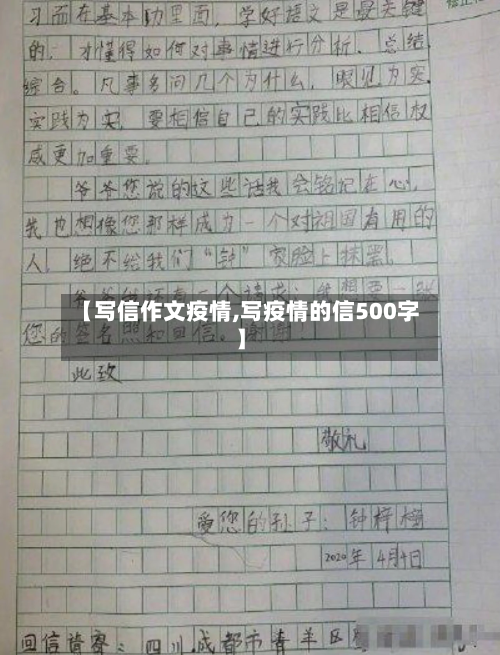 习而在基本功里面，学好语文是最关键
的，才懂得如何对事情进行分析、总结
综合。凡事多问几个为什么，眼见为实
实践为实，要相信自己的实践比相信权
威更加重要。
爷爷您说的这些话我会铭记在心，
我也想像您那样成为一个对祖国有用的
人，绝不给我们“钟”家脸上抹黑。
【写信作文疫情,写疫情的信500字
】
您的签名照和回信。谢谢！
此致
敬礼
爱您的孙子：钟梓
2020年4月4日
回信皆寄：四川成都市青羊区